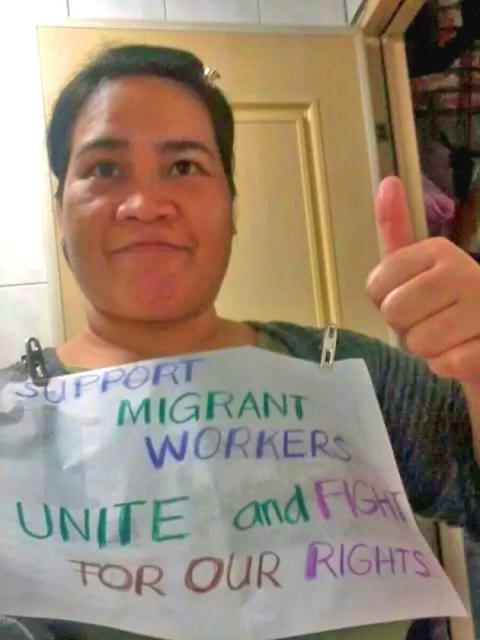 SUPPORT
MIGRANT
WORKERS
UNITE and FIGHT
FOR OUR RIGHTS